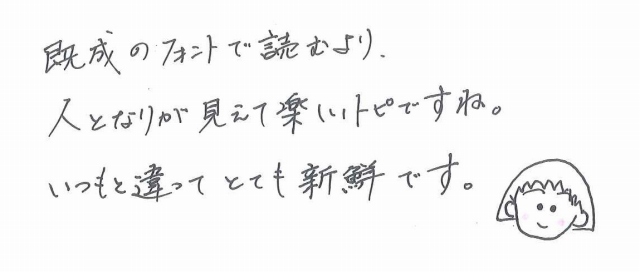 既成のフォントで読むより、
人となりが見えて楽しいトピですね。
いつもと違ってとても新鮮です。